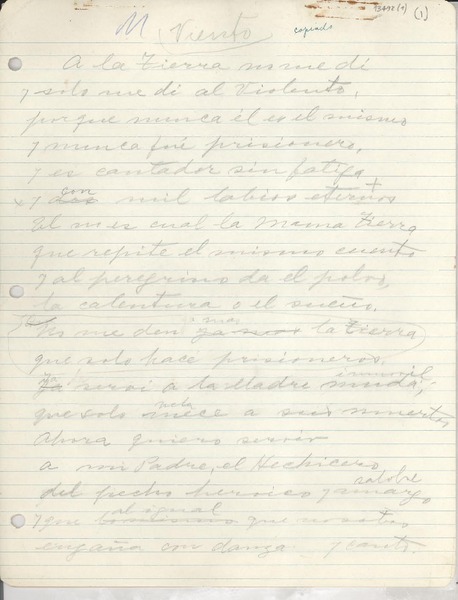 M Viento copiado (1)
A la Tierra no me dí
y solo me dí al Violento,
porque nunca él es el mismo
y nunca fué prisionero,
y es cantador sin fatiga
x y con mil labios eternos +
El no es cual la Mama Tierra
que repite el mismo cuento
y al peregrino da el polvo,
la calentura o el sueño.
No me den mas la Tierra
que solo hace prisioneros,
Ya serví a la Madre muda, inmovil
que solo mece a sus muertos
Ahora quiero servir
a mi Padre, el Hechicero
del pecho heroico y amargo salobre
y que al igual que nosotros
engaña con danza y canto.